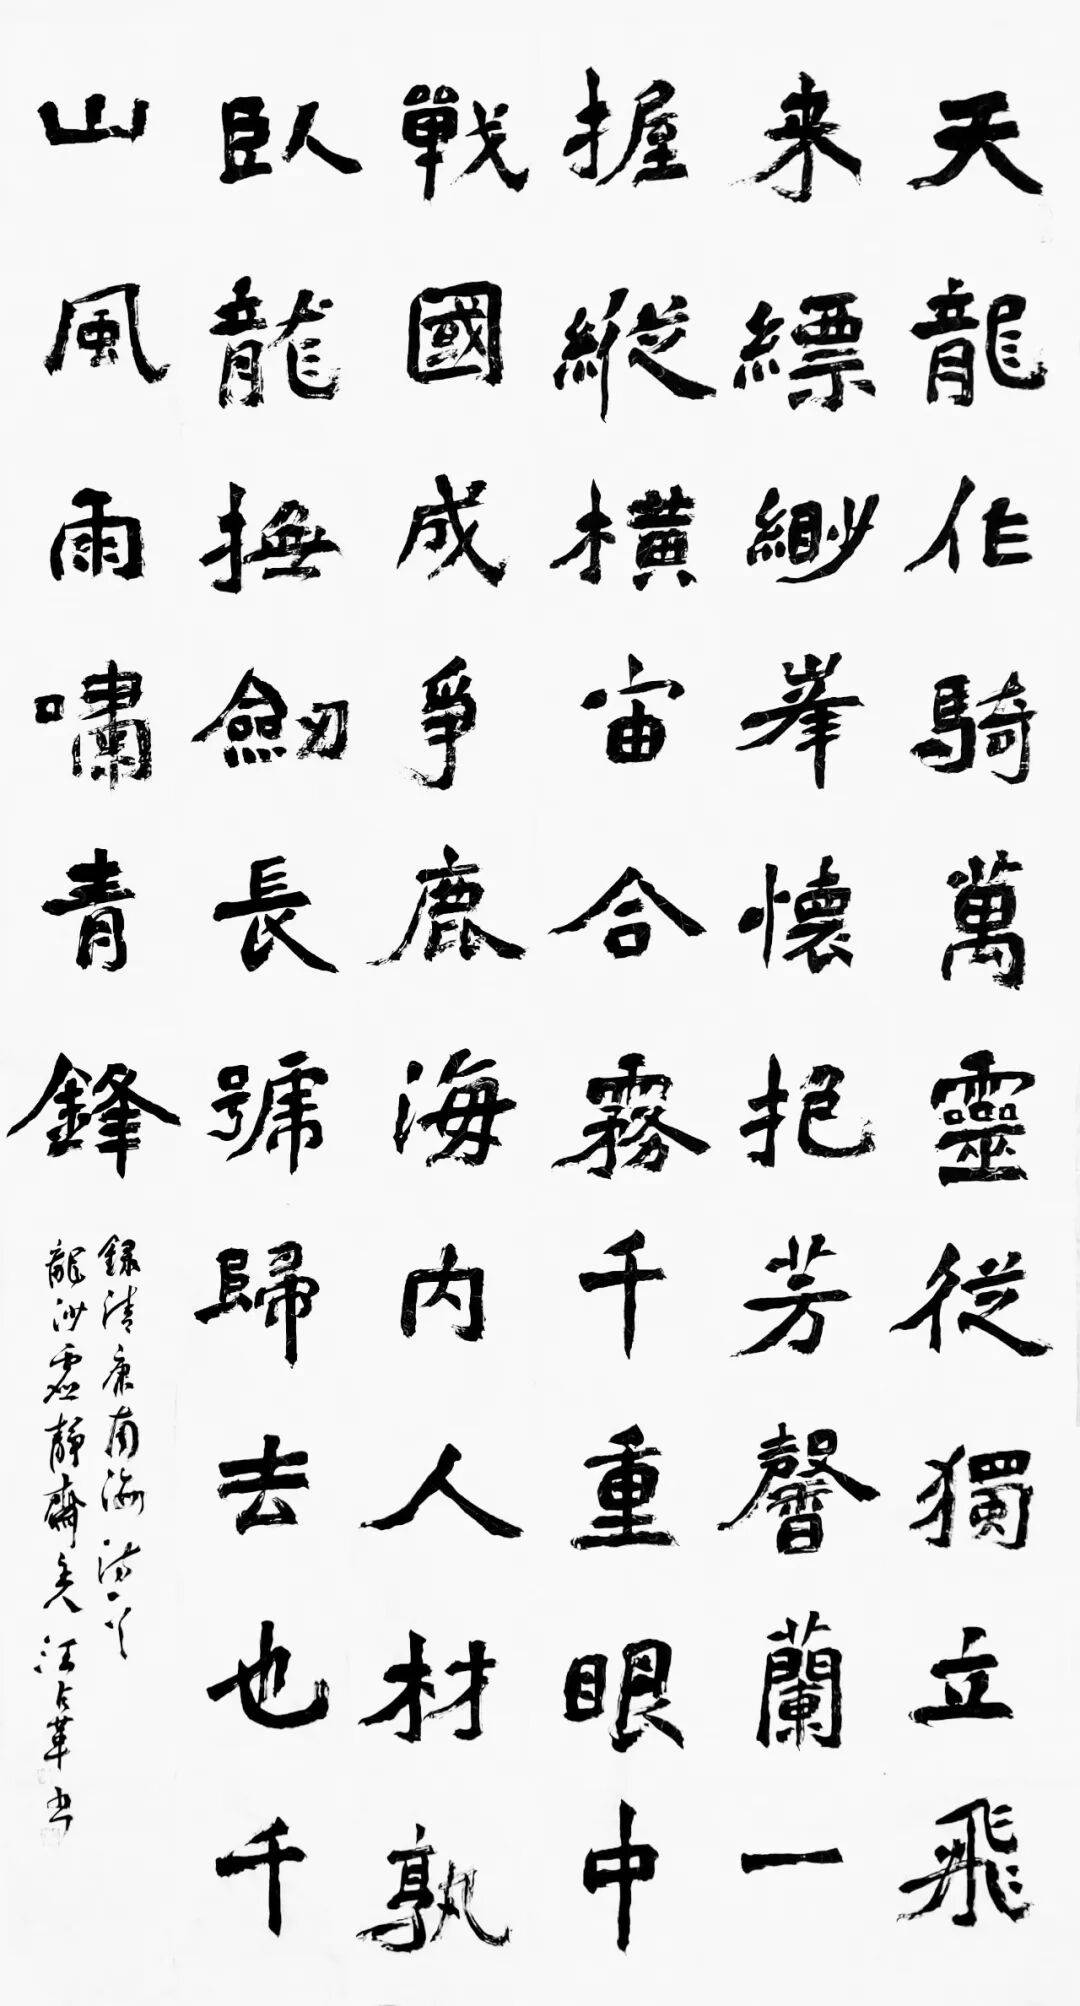 天龍作騎萬靈從獨立飛
来縹緲峯懷抱芳馨蘭一
握縱橫宙合霧千重眼中
戰國成爭鹿海内人材孰
臥龍撫劒長號歸去也千
山風雨嘯青鋒
録清康南海詩一首
龍沙虛靜齋主人江占革書